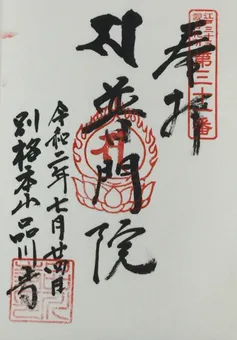 奉拝
普門院
令和二年七月廿四日
別格本山品川寺